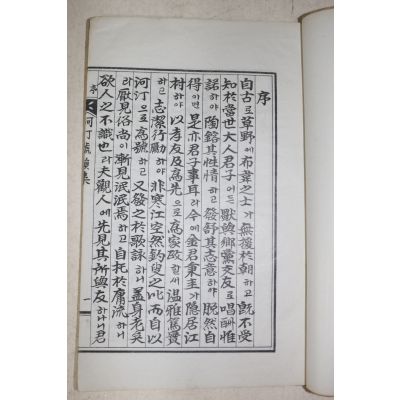 序
自古로 草野에 布韋之士가 無復於朝하고 旣不受
知於當世大人君子어든 獸與鄕黨交友로 唱酬惟
諾하야 陶鎔其性情하고 發舒其志意하야 脫然自
得이면 是亦君子事耳라 今에 金君秉圭가 隱居江
村하야 以孝友及高先으로 爲家政할새 溫雅篤實
하고 志潔行勵하야 非寒江空然釣叟之比而自以
河汀으로 爲號하고 又發之於歌詠하니 盖身老矣
라 厭見俗尙이 漸見泯泯焉하고 自托於庸流하니
欲人之不識也라 夫觀人에 先見其所與友하나니 君
序 河汀號韻集 一